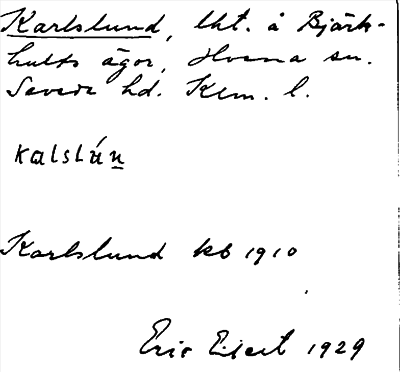 Karlslund, lht. å Björk-
hults ägor, Hvena sn.
Sevede hd. Klm. l.
kalslún
Karlslund kb 1910
Eric Elgert 1929